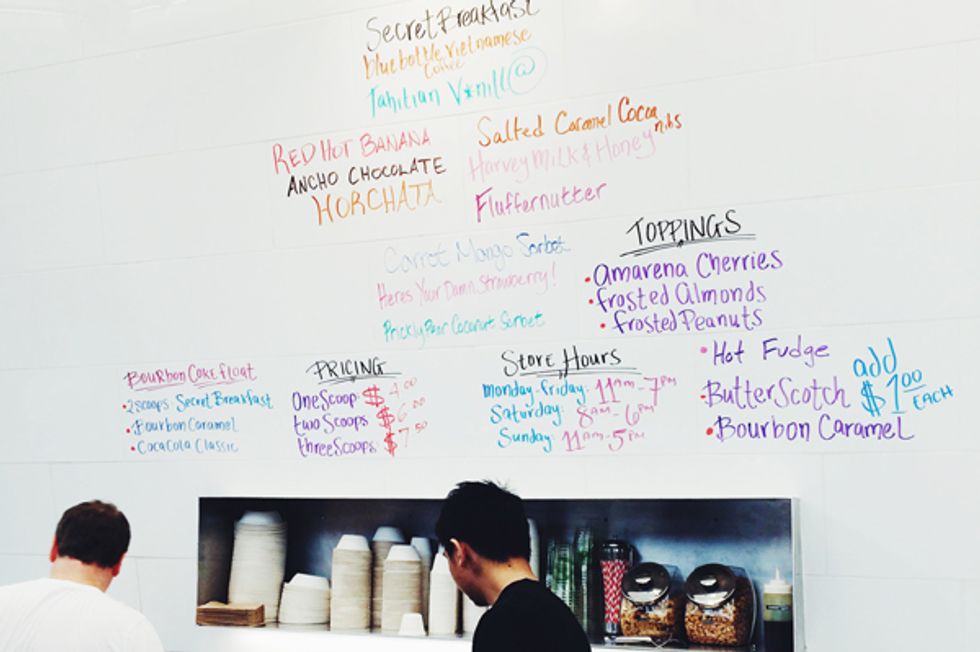 Secret Breakfast
bluebottle vietnamese
Coffee
Tahitian Vanill@
RED HOT BANANA
ANCHO CHOCOLATE
HORCHATA
Salted Caramel Cocoa nibs
Harvey Milk & Honey
Fluffernutter
Carrot Mango Sorbet
Heres Your Damn Strawberry!
Prickly Pear Coconut Sorbet
TOPPINGS
• Amarena Cherries
• frosted Almonds
• frosted Peanuts
• Hot Fudge
• ButterScotch
• Bourbon Caramel
add
$1.00
EACH
Bourbon Coke Float
• 2 scoops Secret Breakfast
• Bourbon Caramel
• CocaCola Classic
PRICING
One Scoop: $4.00
two Scoops $6.00
three Scoops: $7.50
Store Hours
Monday-Friday: 11am-7pm
Saturday: 8am-6pm
Sunday: 11am-5pm